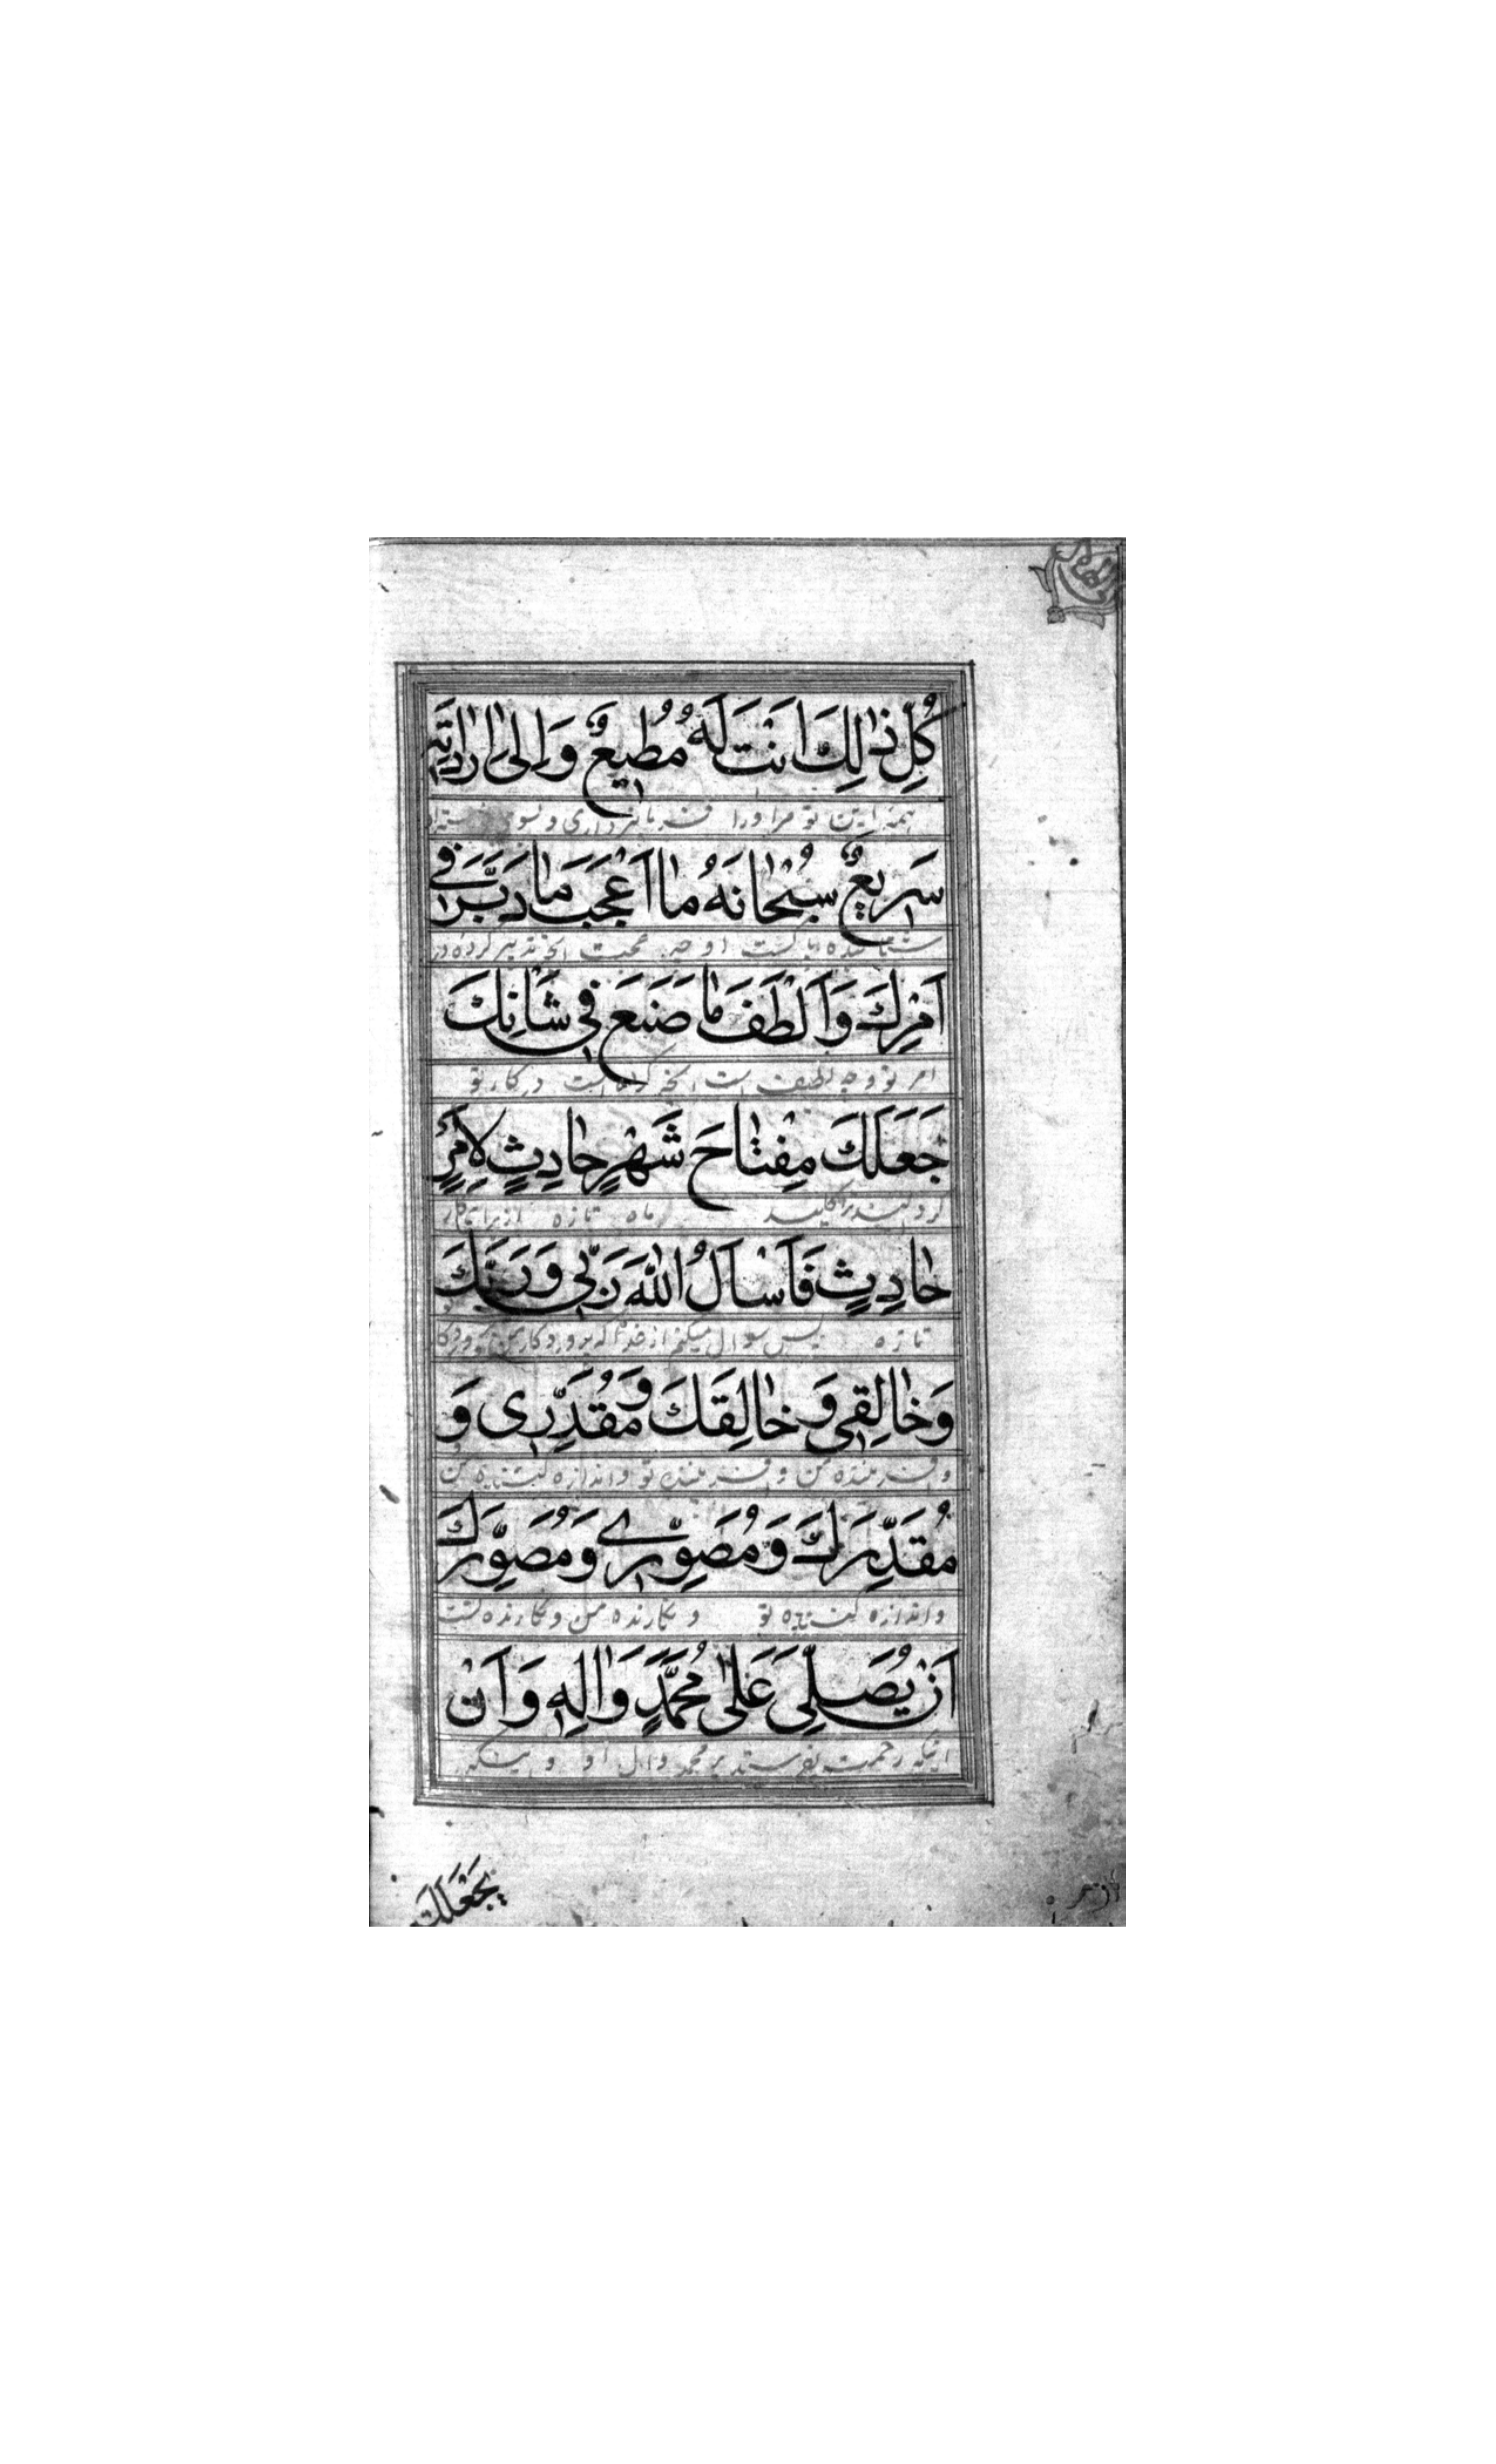 كُلِّ ذٰلِكَ اَنْتَ لَهُ مُطِيعٌ وَاِلىٰ اِرَادَتِهِ
همه این تو مر او را فرمانبرداری و بسوی
سَرِيعٌ سُبْحٰانَهُ مٰا اَعْجَبَ مٰا دَبَّرَ فِي
شتابنده پاکست او چه عجبست آنچه تدبیر کرده در
اَمْرِكَ وَاَلْطَفَ مٰا صَنَعَ فِي شَانِكَ
امر تو و چه لطیف است آنچه کرده است در کار تو
جَعَلَكَ مِفْتٰاحَ شَهْرٍ حٰادِثٍ لِاَمْرٍ
کردانید ترا کلید ماه تازه از برای کار
حٰادِثٍ فَاَسْاَلُ اللّٰهَ رَبِّي وَرَبَّكَ
تازه پس سوال میکنم از خدا که پروردکار من
وَخٰالِقِي وَخٰالِقَكَ وَمُقَدِّرِي وَ
و آفریننده من و آفریننده تو و اندازه کننده من
مُقَدِّرَكَ وَمُصَوِّرِي وَمُصَوِّرَكَ
و اندازه کننده تو و نکارنده من و نکارنده تست
اَنْ يُصَلِّيَ عَلىٰ مُحَمَّدٍ وَاٰلِهِ وَاَنْ
اینکه رحمت بفرستد بر محمد و آل او و اینکه
يَجْعَلَكَ